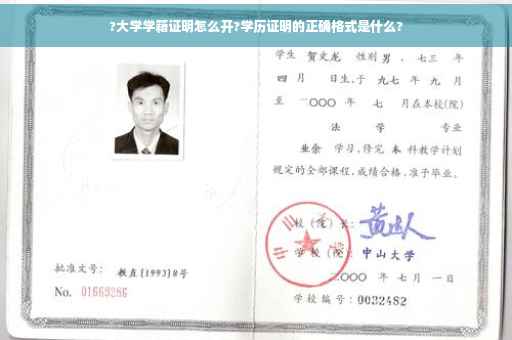 ?大学学籍证明怎么开?学历证明的正确格式是什么?
学生 贺文龙 性别 男 ，七三 年
四 月 日生,于 九七 年 九 月
至 二〇〇〇 年 七 月在本校(院)
法 学 专业
业余 学习,修完 本 科教学计划
规定的全部课程,成绩合格,准予毕业。
校(院)长:
学校(院): 中山大学
二〇〇〇 年 七 月 一 日
批准文号: 教直[1993]8号
No. 01669286
学校编号: 0032482